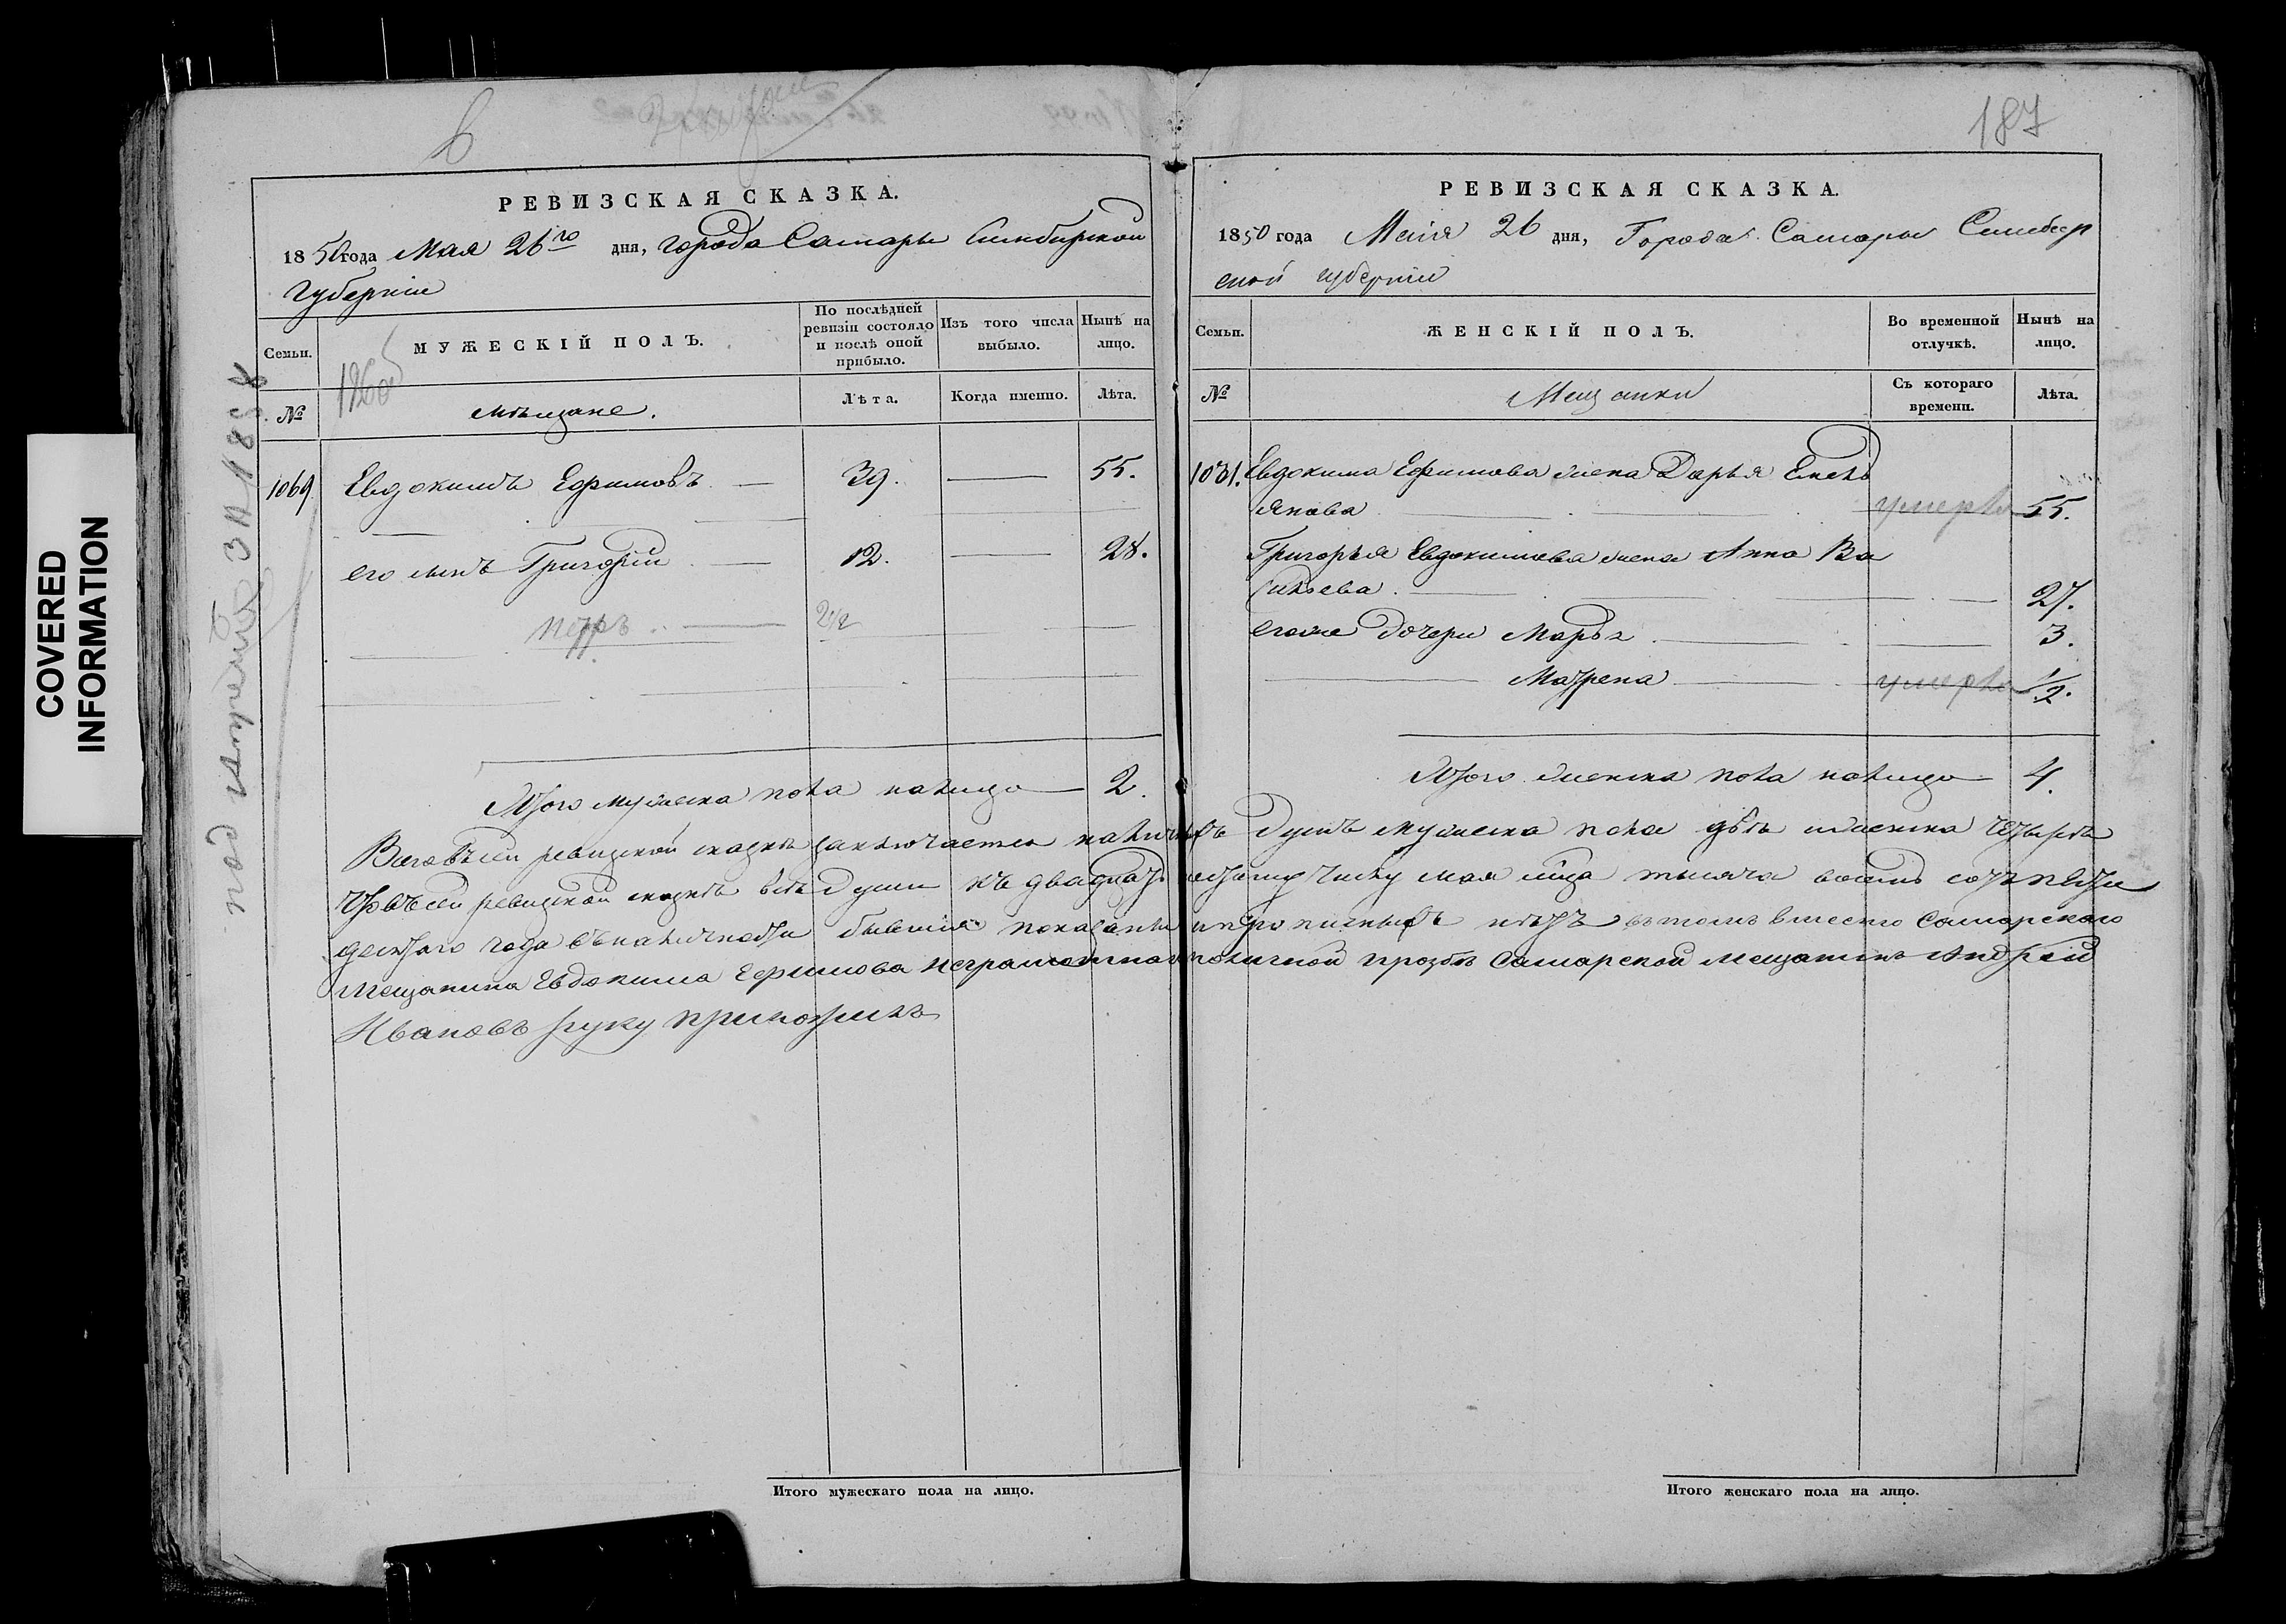 187
РЕВИЗСКАЯ СКАЗКА.
1850 года Мая 26го дня, города Самары Симбирской
Губернiи
Семьи.
МУЖЕСКIЙ ПОЛЪ.
По послѣдней ревизiи состояло и послѣ оной прибыло.
Изъ того числа выбыло.
Нынѣ на лицо.
№
мѣщане.
Лѣта.
Когда именно.
Лѣта.
1069 Евдокимъ Ефимовъ 39. 55.
его сынъ Григорiй 12. 28.
Петръ
Итого мужеска пола налицо 2.
РЕВИЗСКАЯ СКАЗКА.
1850 года Маiя 26 дня, Города Самары Симбир
ской губернiи
Семьи.
ЖЕНСКIЙ ПОЛЪ.
Во временной отлучкѣ.
Нынѣ на лицо.
№
Мещанки
Съ котораго времени.
Лѣта.
Евдокима Ефимова жена Дарья Емель
янова умерла 55.
Григорья Евдокимова жена Анна Ва
сильева 27.
его же дочери Марья 3.
Матрена умерла 1/2.
Итого женска пола налицо 4.
Всего въ сей ревизской сказкѣ заключается наличныхъ душъ мужеска пола двѣ и женска четыре
Что въ сей ревизской сказкѣ всѣ души къ двадцать шестому числу мая мца тысяча восемь сотъ пяти
десятаго года въ наличности бывшiя показаны и прописныхъ нѣтъ въ томъ вместо Самарскаго
Мещанина Евдокима Ефимова неграмотнаго по личной прозбѣ Самарской мещанинъ Андрей
Ивановъ руку приложилъ
Итого мужескаго пола на лицо.
Итого женскаго пола на лицо.
COVERED
INFORMATION